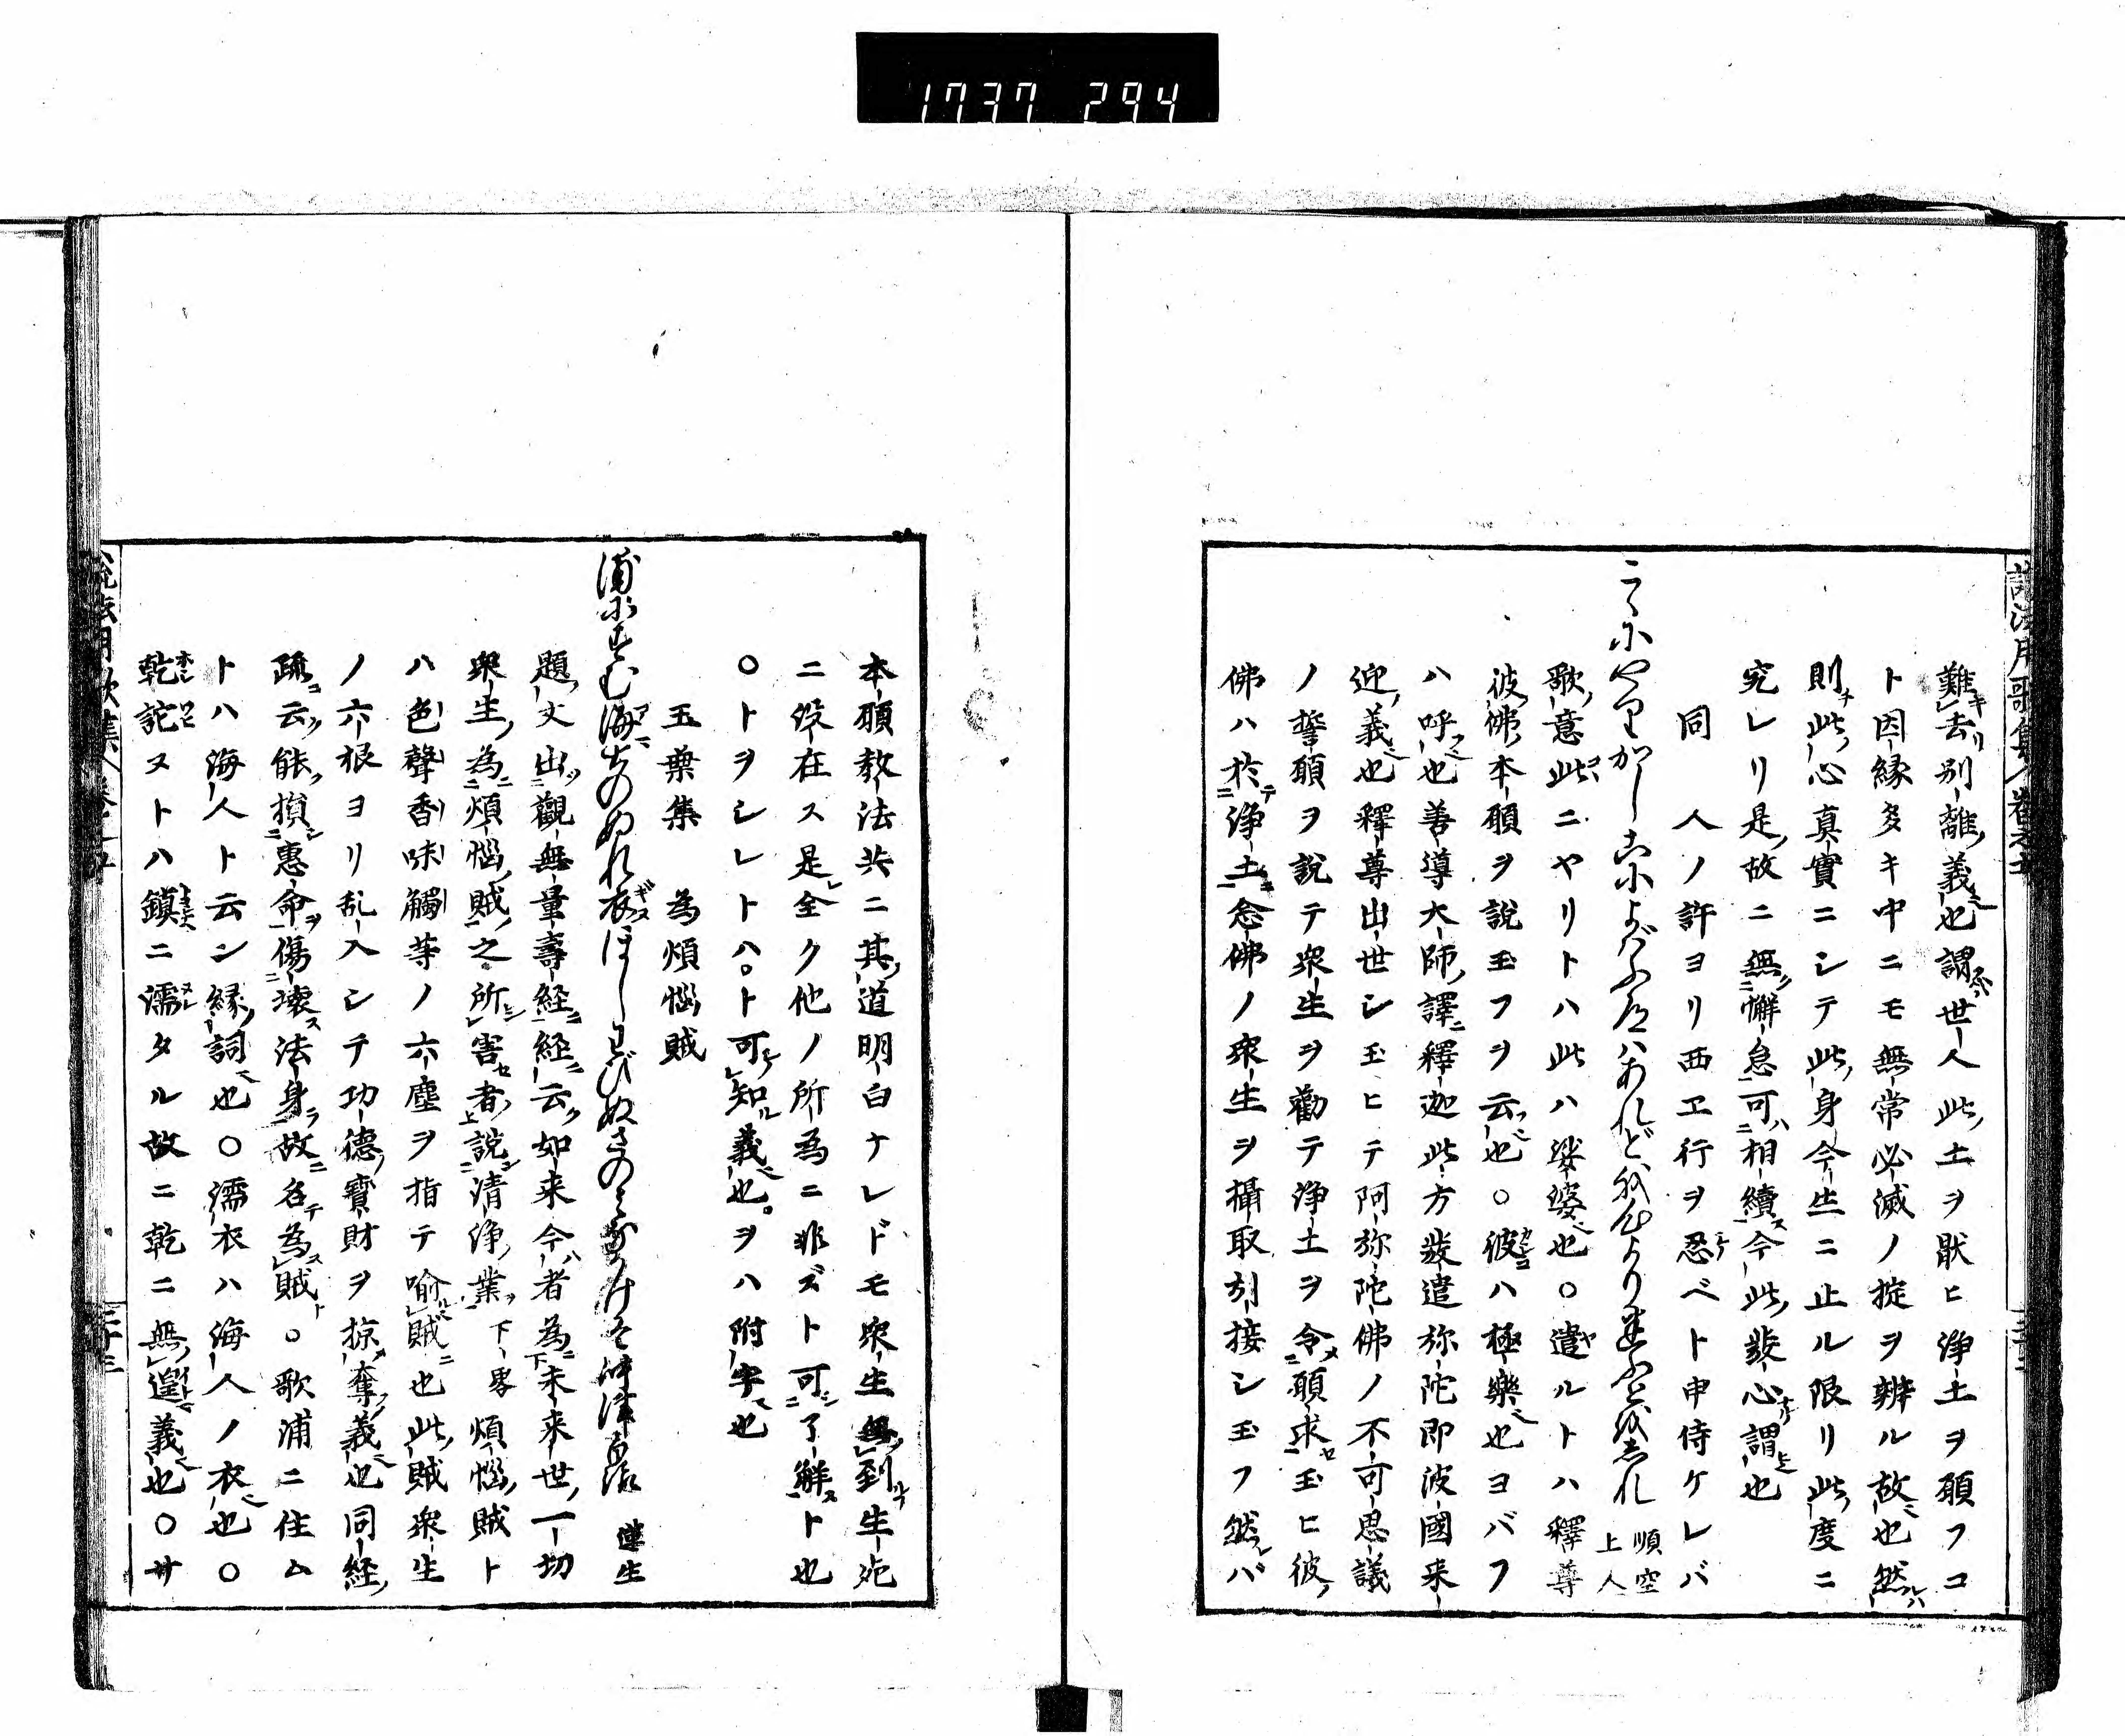 1737 294
難去別離義也謂世人此土ヲ厭ヒ浄土ヲ願フコ
ト因縁多キ中ニモ無常必滅ノ掟ヲ辨ル故也然
則此心真實ニシテ此身今生ニ止ル限リ此度ニ
究レリ是故ニ無懈怠可相續今此發心謂也
同 人ノ許ヨリ西ヱ行ヲ忍ベト申侍ケレバ
順空上人
歌意此ニヤリトハ此ハ娑婆也○遣ルトハ釋尊
彼佛本願ヲ説玉フヲ云也○彼ハ極樂也ヨバフ
ハ呼也善導大師譯釋迦此方發遣弥陀即彼國来
迎義也釋尊出世シ玉ヒテ阿弥陀佛ノ不可思議
ノ誓願ヲ説テ衆生ヲ勸テ浄土ヲ令願求玉ヒ彼
佛ハ於浄土念佛ノ衆生ヲ攝取引接シ玉フ然バ
本願教法共ニ其道明白ケレドモ衆生無到生死
ニ沒在ス是全ク他ノ所為ニ非ズト可了解ト也
○トヲシレトハ○ト可知義也○ヲハ附字也
玉葉集 為煩惱賊
蓮生
題文出觀無量壽経経云如来今者為未来世一切
衆生為煩惱賊之所害者説清浄業下畧煩惱賊ト
ハ色聲香味觸等ノ六塵ヲ指テ喩賊也此賊衆生
ノ六根ヨリ乱入シテ功德寶財ヲ掠奪義也同経
疏云能損惠命傷壊法身故名為賊○歌浦ニ住ム
トハ海人ト云ン縁詞也○濡衣ハ海人ノ衣也○
乾詫ヌトハ鎮ニ濡タル故ニ乾ニ無遑義也○サ